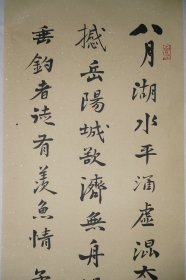 八月湖水平涵虚混太
撼岳陽城欲濟無舟
垂釣者徒有羡魚情